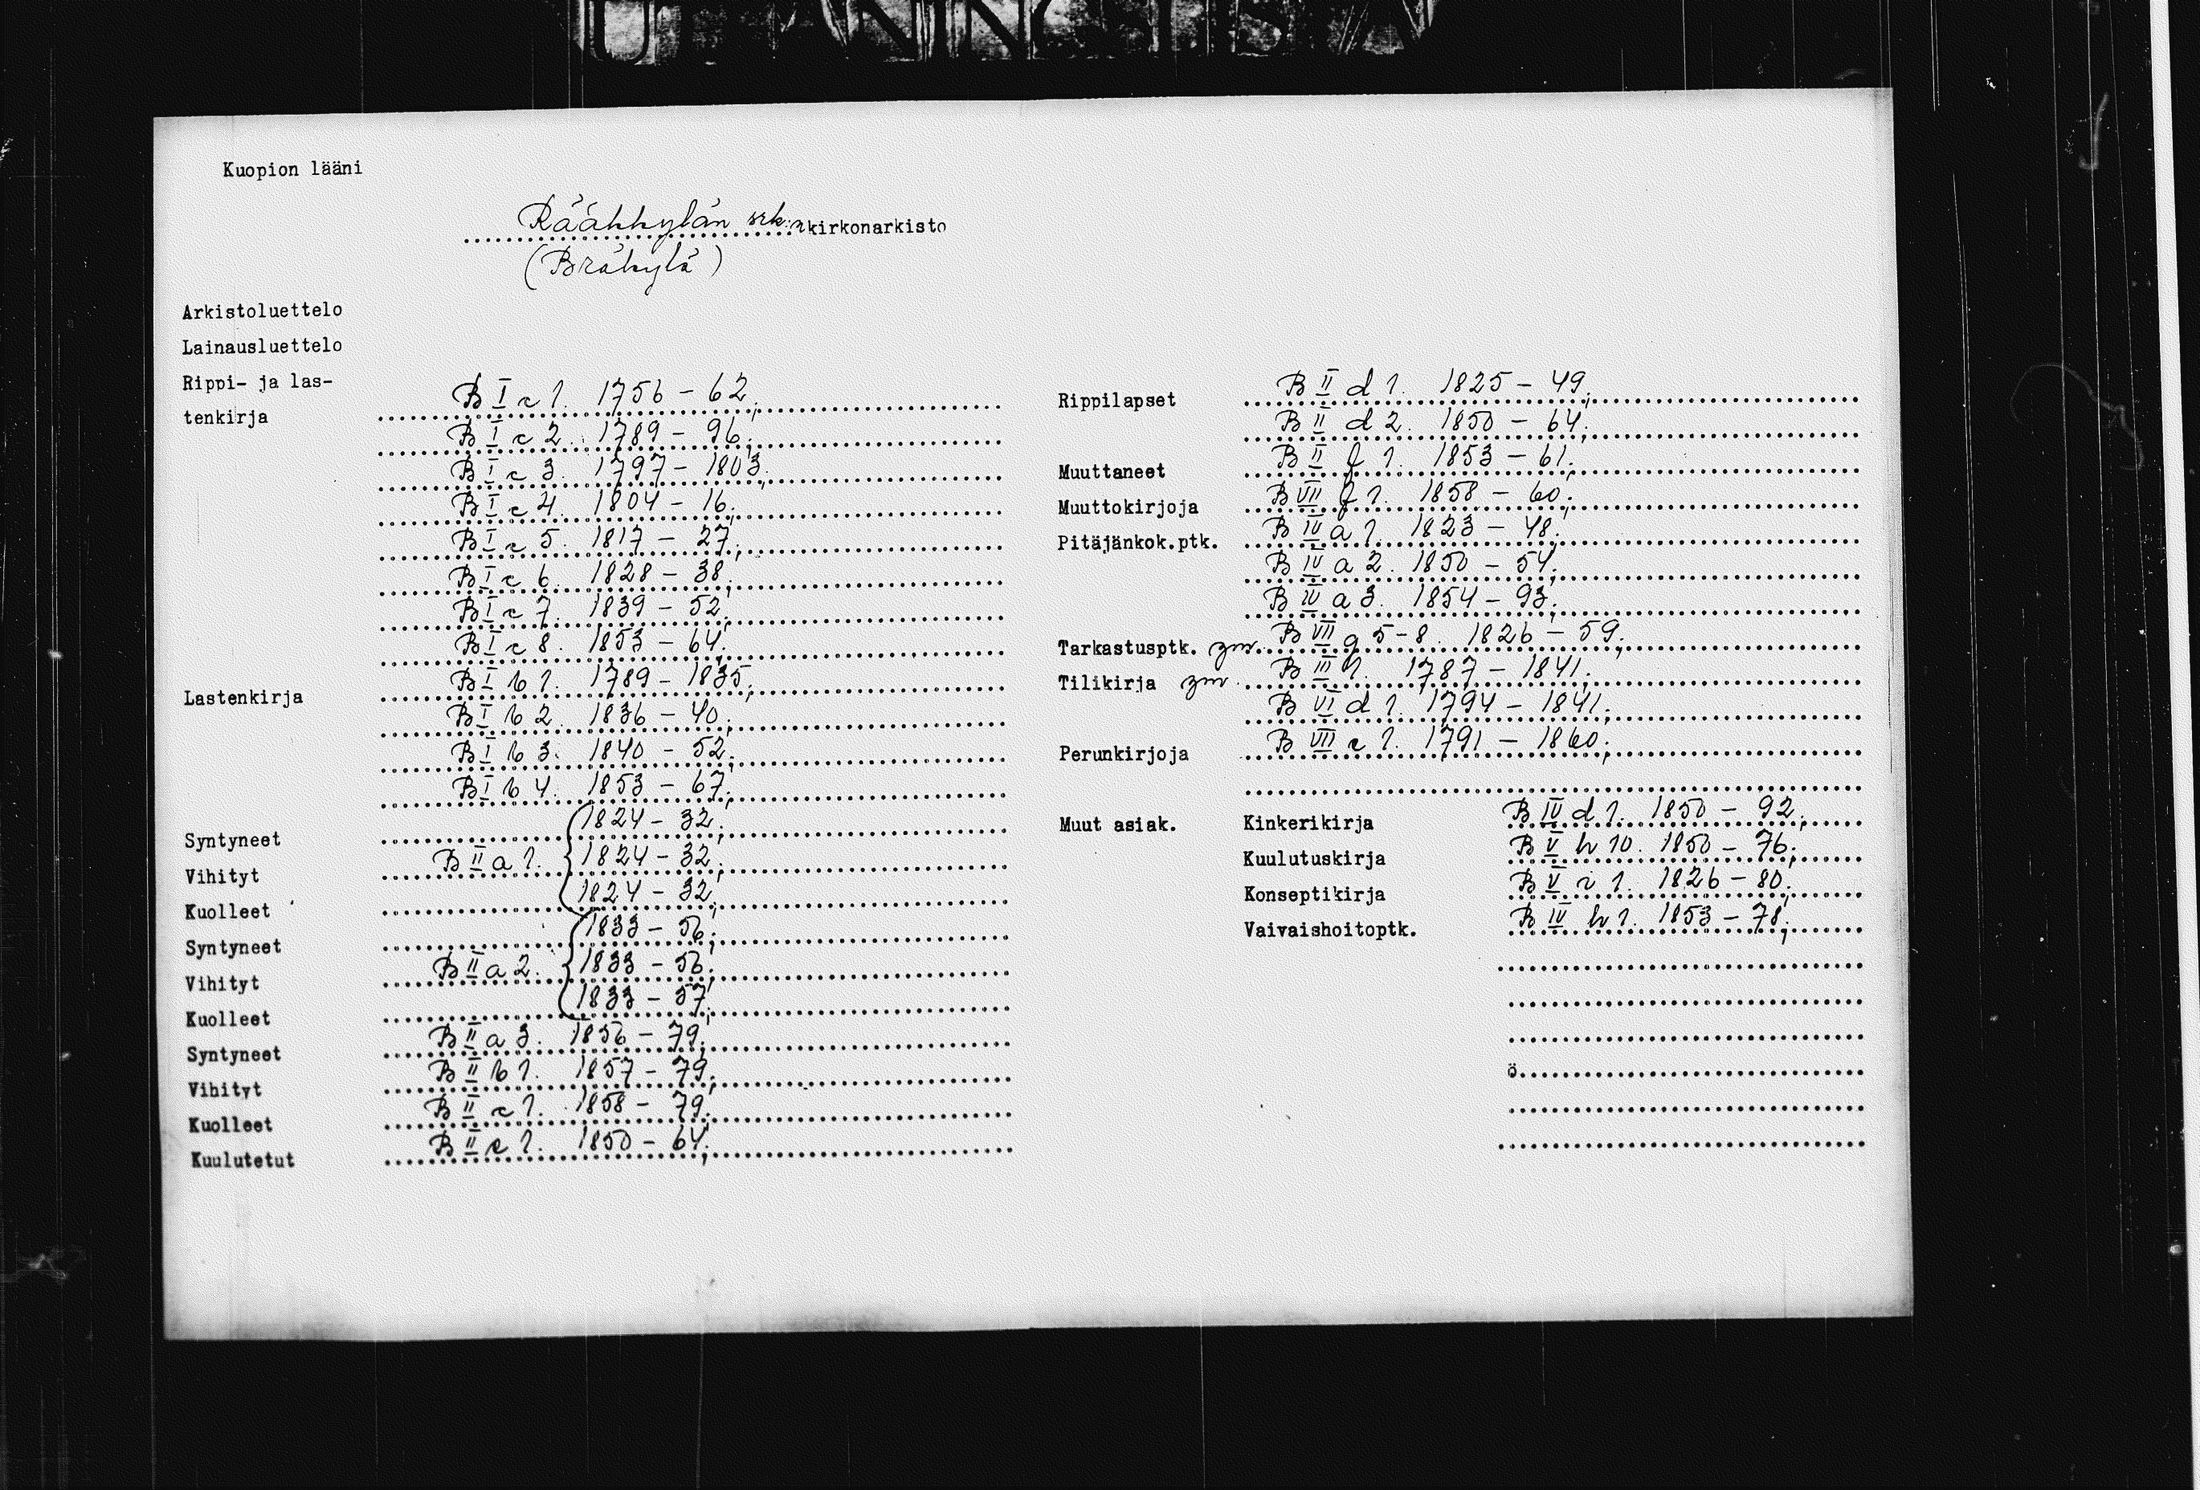 Kuopion lääni
Rääkkylän srk:n kirkonarkisto
(Bräkylä)
Arkistoluettelo
Lainausluettelo
Rippi- ja las-
tenkirja B I c 1. 1756 - 62;
B I c 2. 1789 - 96;
B I c 3. 1797 - 1803;
B I c 4. 1804 - 16;
B I c 5. 1817 - 27;
B I c 6. 1828 - 38;
B I c 7. 1839 - 52;
B I c 8. 1853 - 64;
Lastenkirja B I b 1. 1789 - 1835;
B I b 2. 1836 - 40;
B I b 3. 1840 - 52;
B I b 4. 1853 - 67;
Syntyneet 1824 - 32;
Vihityt B II a 1. 1824 - 32;
Kuolleet 1824 - 32;
Syntyneet 1833 - 56;
Vihityt B II a 2. 1833 - 56;
Kuolleet 1833 - 57;
Syntyneet B II a 3. 1856 - 79;
Vihityt B II b 1. 1857 - 79;
Kuolleet B II c 1. 1858 - 79;
Kuulutetut B II e 1. 1850 - 64;
Rippilapset B II d 1. 1825 - 49;
B II d 2. 1850 - 64;
Muuttaneet B II f 1. 1853 - 61;
Muuttokirjoja B VII f 1. 1858 - 60;
Pitäjänkok.ptk. B IV a 1. 1823 - 48;
B IV a 2. 1850 - 54;
B IV a 3. 1854 - 93;
Tarkastusptk. ym. B VII g 5-8. 1826 - 59;
Tilikirja ym. B III 1. 1787 - 1841;
B VI d 1. 1794 - 1841;
Perunkirjoja B VII c 1. 1791 - 1860;
Muut asiak. Kinkerikirja B IV d 1. 1850 - 92;
Kuulutuskirja B V h 10. 1850 - 76;
Konseptikirja B V i 1. 1826 - 80;
Vaivaishoitoptk. B IV h 1. 1853 - 78;
ö